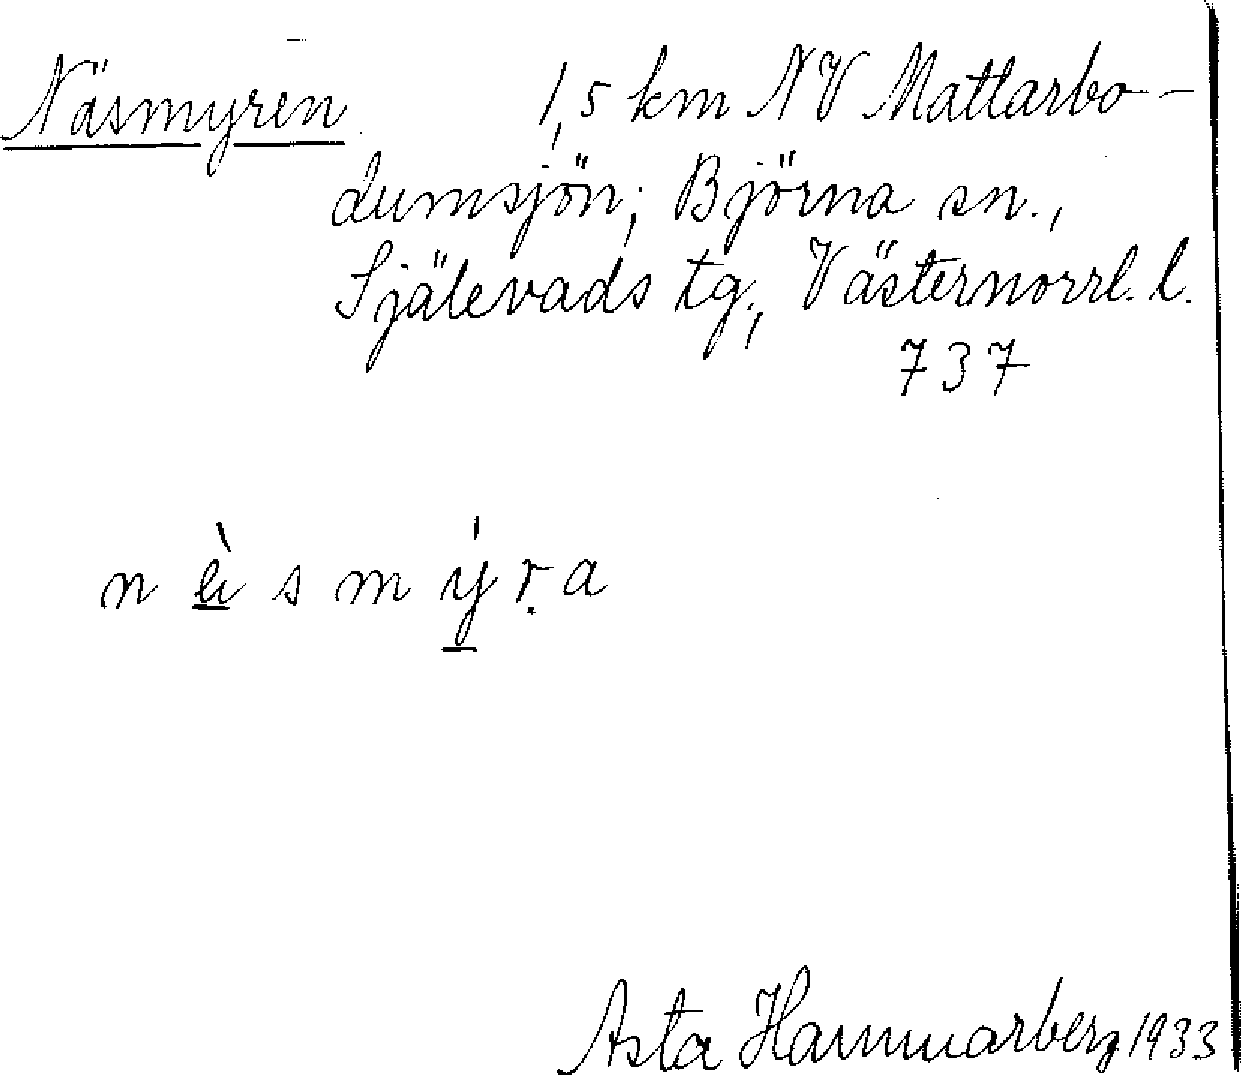 Näsmyren 1,5 km NV Mattarbo-
dumsjön; Björna sn.,
Själevads tg., Västernorrl. l.
737
n èi s m ý ṛ a
Asta Hammarberg 1933